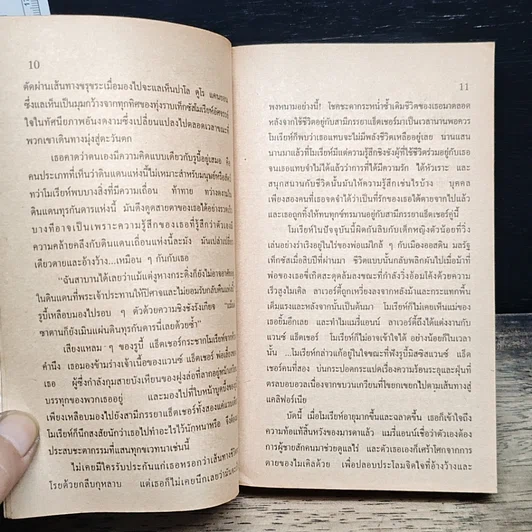 10
ตัดผ่านเส้นทางขรุขระเมื่อมองไปจะแลเห็นปาโล ดูโร แคนยอน
ซึ่งแลเห็นเป็นมุมกว้างจากทุกทิศของทุ่งราบเท็กซัสโมเรียห์
ใจในทัศนียภาพอันงดงามซึ่งเปลี่ยนแปลงไปตลอดเวลาขณะที่
พวกเขาเดินทางมุ่งสู่ตะวันตก
เธอคาดว่าตนเองมีความคิดแบบเดียวกับรูบี้อยู่เสมอ คือ
คนประเภทที่เห็นว่าดินแดนแห่งนี้ไม่เหมาะสำหรับมนุษย์หรือสัตว์
ทว่าโมเรียห์พบบางสิ่งที่มีความเถื่อน ท้าทาย ทว่างดงามใน
ดินแดนทุรกันดารแห่งนี้ มันดึงดูดสายตาของเธอได้อย่าง
บางทีอาจเป็นเพราะความรู้สึกของเธอที่รู้สึกว่าตัวเอง
ความคล้ายคลึงกับดินแดนเถื่อนแห่งนี้ละมัง มันเปล่าเปลี่ยว
เดียวดายและอ้างว้าง...เหมือน ๆ กันกับเธอ
"ฉันสาบานได้เลยว่าแม้แต่งูหางกระดิ่งก็ยังไม่อาจอาศัย
ในดินแดนที่พระเจ้าประทานให้ปีศาจและไม่ยอมรับกลับคืน
รูบี้เหลือบมองไปรอบ ๆ ตัวด้วยความชิงชังรังเกียจ "แม้แต่
ซาตานก็ยังเมินแผ่นดินทุรกันดารนี้เลยด้วยซ้ำ"
เสียงแหลม ๆ ของรูบี้ แธ็ตเชอร์กระชากโมเรียห์จาก
คำนึง เธอมองข้ามร่างเจ้าเนื้อของแวนซ์ แธ็ตเชอร์ พ่อเลี้ยงของ
เธอ ผู้ซึ่งกำลังกุมสายบังเหียนของฝูงล่อที่ลากอยู่หน้า
บรรทุกของพวกเธออยู่ และมองไปที่ใบหน้าบูดบึ้งของ
เพียงเหลือบมองไปยังสามีภรรยาแธ็ตเชอร์ทั้งสองแค่
โมเรียห์ก็นึกสงสัยนักว่าเธอไปทำอะไรไว้นักหนาหรือ จึงต้อง
ประสบชะตากรรมที่แสนทุกขเวทนาเช่นนี้
ไม่เคยมีใครรับประกันแก่เธอหรอกว่าเส้นทาง
โรยด้วยกลีบกุหลาบ แต่เธอก็ไม่เคยนึกเลยว่ามัน
11
พงหนามอย่างนี้! โชคชะตากระหน่ำซ้ำเติมชีวิตของเธอมาตลอด
หลังจากใช้ชีวิตอยู่กับสามีภรรยาแธ็ตเชอร์มาเป็นเวลานานพอควร
โมเรียห์ก็พบว่าเธอแทบจะไม่มีพลังชีวิตเหลืออยู่เลย นานแสน
นานมาแล้วที่โมเรียห์มีแต่ความรู้สึกชิงชังผู้ที่ใช้ชีวิตร่วมอยู่กับเธอ
จนเธอแทบจำไม่ได้แล้วว่าการที่ได้มีความรัก ได้หัวเราะ และ
สนุกสนานกับชีวิตนั้นมันให้ความรู้สึกเช่นไรบ้าง บุคคล
เพียงสองคนที่เธอจดจำได้ว่าเป็นที่รักของเธอได้ตายจากไปแล้ว
และเธอถูกทิ้งให้ทนทุกข์ทรมานอยู่กับสามีภรรยาแธ็ตเชอร์คู่นี้
โมเรียห์ในปัจจุบันนี้ผิดกันลิบกับเด็กหญิงตัวน้อยที่วิ่ง
เล่นอย่างร่าเริงอยู่ในไร่ของพ่อแม่ใกล้ ๆ กับเมืองออสติน มลรัฐ
เท็กซัสเมื่อสิบปีที่ผ่านมา ชีวิตแบบนั้นกลับพลิกผันไปเมื่อม้าที่
พ่อของเธอขี่เกิดสะดุดล้มลงขณะที่กำลังวิ่งอ้อมโค้งด้วยความ
เร็วสูงไมเคิล ลาเวอร์ตี้ถูกเหวี่ยงลงจากหลังม้าและกระแทกพื้น
เต็มแรงและหลังจากนั้นเป็นต้นมา โมเรียห์ก็ไม่เคยเห็นแม่ของ
เธอยิ้มอีกเลย และทำไมแมรี่แอนน์ ลาเวอร์ตี้ถึงได้แต่งงานกับ
แวนซ์ แธ็ตเชอร์ โมเรียห์ก็ไม่อาจเข้าใจได้ อย่างน้อยก็ในเวลา
นั้น ...โมเรียห์กล่าวแก้อยู่ในใจขณะที่ฟังรูบี้มิสซิสแวนซ์ แธ็ต
เชอร์คนที่สอง บ่นกระปอดกระแปดเรื่องความร้อนระอุและฝุ่นที่
ตรลบอบอวลเนื่องจากขบวนเกวียนที่โขยกเขยกไปตามเส้นทางสู่
แคลิฟอร์เนีย
บัดนี้ เมื่อโมเรียห์อายุมากขึ้นและฉลาดขึ้น เธอก็เข้าใจถึง
ความท้อแท้สิ้นหวังของมารดาแล้ว แมรี่แอนน์เชื่อว่าตัวเองต้อง
การผู้ชายสักคนมาช่วยดูแลไร่ และตัวเธอเองก็เศร้าโศกจากการ
ตายของไมเคิลด้วย เพื่อปลอบประโลมจิตใจที่อ้างว้างและ